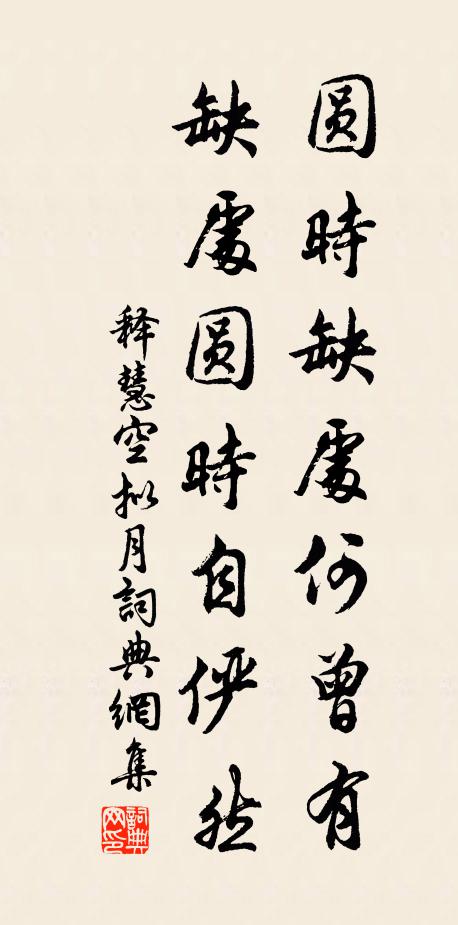 圆時缺處何曾有
缺處圆時自俨然
释慧空拟月詞典網集
詞典網印